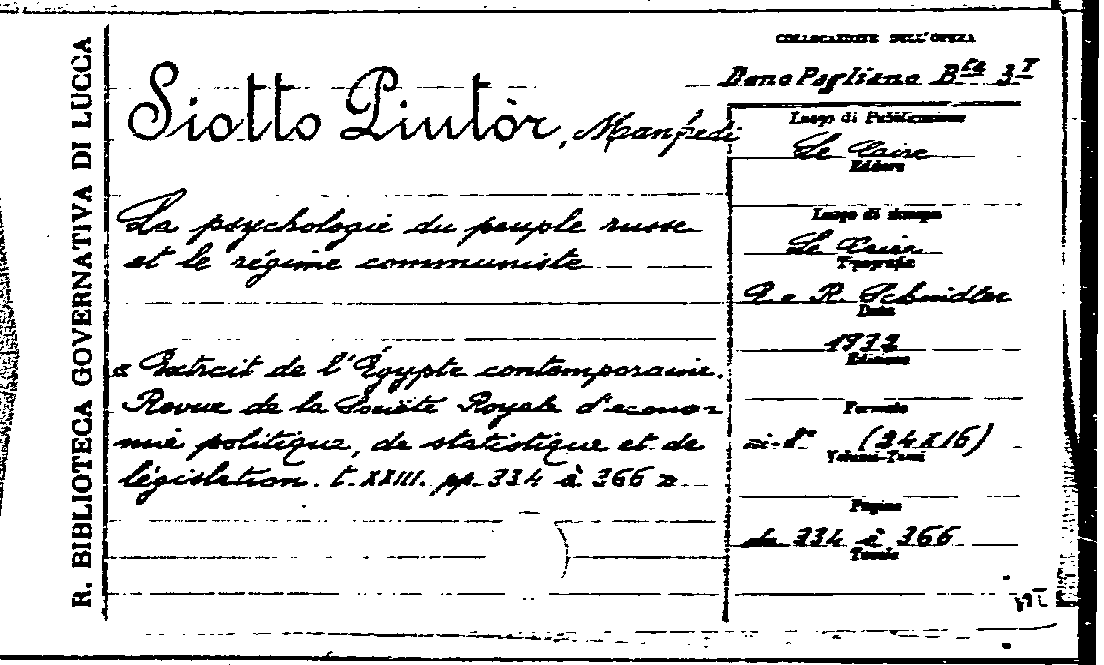 R. BIBLIOTECA GOVERNATIVA DI LUCCA
Siotto Pintòr, Manfredi
La psychologie du peuple russe
et le régime communiste
« Extrait de l'Égypte contemporaine.
Revue de la Société Royale d'econo-
mie politique, de statistique et de
législation. t. XXIII. pp. 334 à 366 »
COLLOCAZIONE DELL'OPERA
Dono Pagliano B.ta 3ª
Luogo di Pubblicazione
Le Caire
Editore
Luogo di stampa
Le Caire
Tipografia
P. e R. Schindler
Data
1932
Edizione
Formato
in-8° (24x16)
Volumi-Tomi
Pagine
da 334 à 366
Tavole